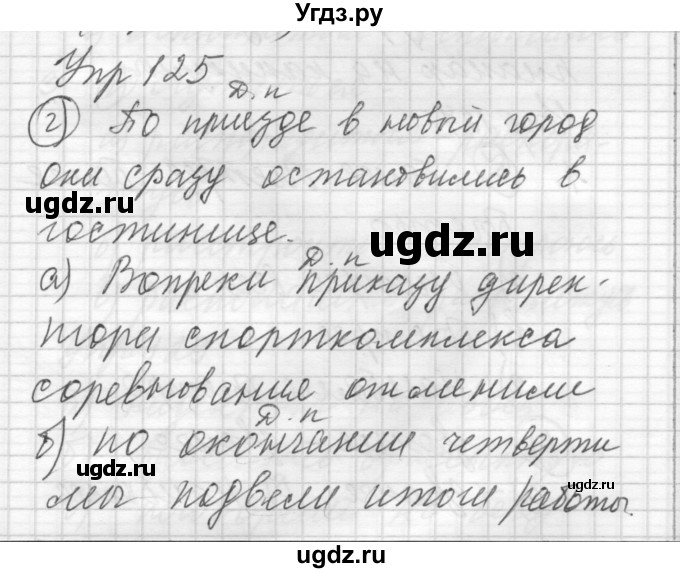 Угдз.ру
Упр 125
Д.п
г) По приезде в новый город
они сразу остановились в
ugdz.ru
гостинице.
ugdz.ru
Д.п
а) Вопреки приказу дирек-
тора спорткомплекса
соревнования отменили
Д.п
б) по окончании четверти
ugdz.ru
ugdz.ru
мы подвели итоги работы.
ugdz.ru